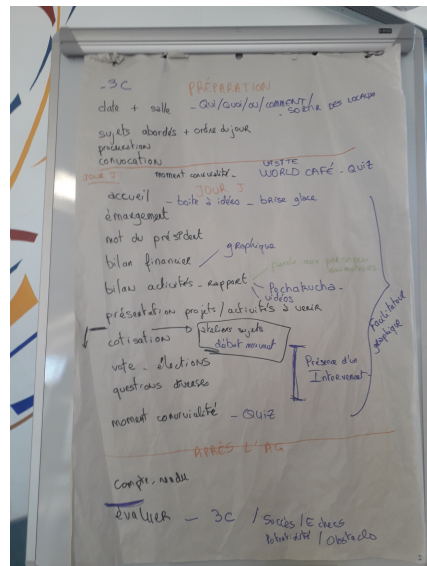 - 3C PRÉPARATION
date + salle - QUI/QUOI/OU/COMMENT/
- SORTIR DES LOCAUX
sujets abordés + ordre du jour
procuration
convocation
VISITE
JOUR J moment convivialité - WORLD CAFÉ - QUIZ
JOUR J
accueil - boite à idées - brise glace
émargement
mot du président
bilan financier graphique
bilan activités - rapport parole aux
Pechakucha -
vidéos
présentation projets / activités à venir
cotisation ateliers sujets
débat mouvant
vote - élections
questions diverses
Présence d'un
Intervenant
facilitateur
graphique
moment convivialité - QUIZ
APRÈS L'AG
compte, rendu
évaluer - 3C / Succès / Echecs
Potentialité / Obstacles
2